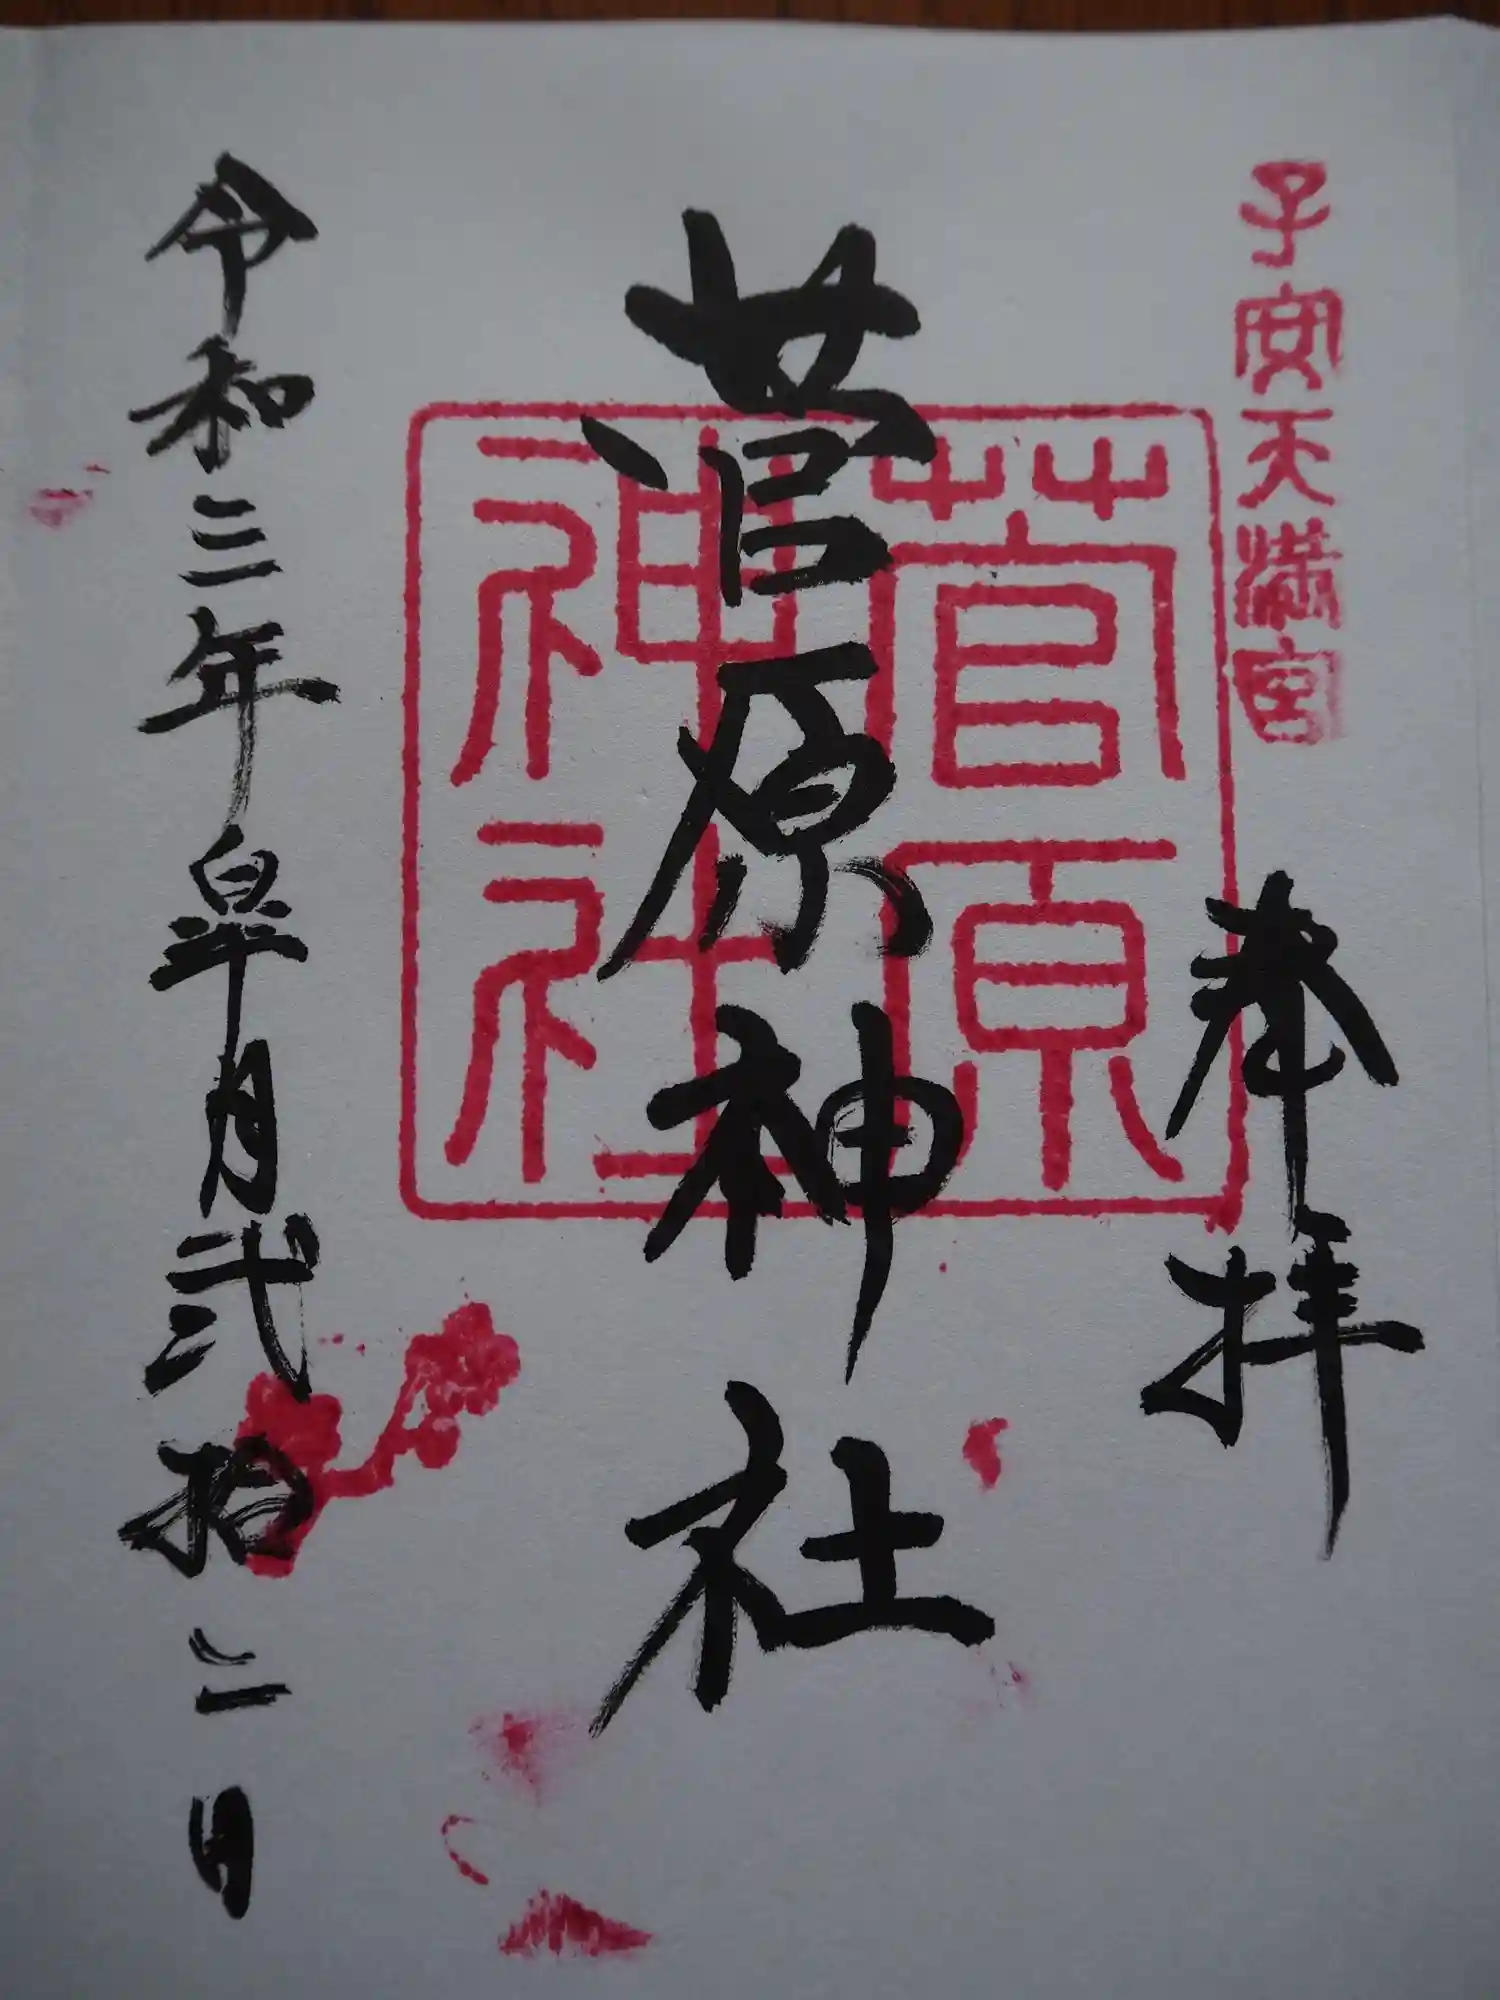 子安天満宮
奉拝
菅原神社
菅原
神社
令和三年皐月弐拾二日